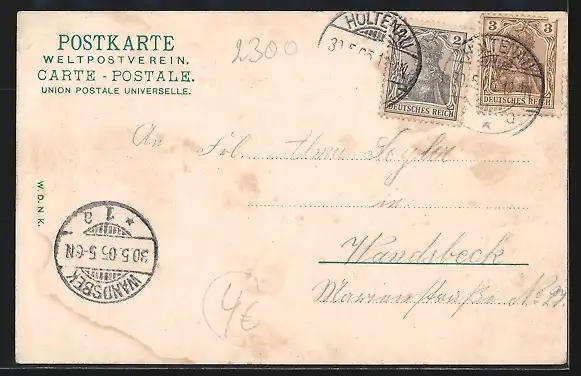 POSTKARTE
WELTPOSTVEREIN.
CARTE - POSTALE.
UNION POSTALE UNIVERSELLE.
2300
HOLTENAU
30.5.05
2
DEUTSCHES REICH
3 3
DEUTSCHES REICH
HOLTENAU
a
An Frl. Alma
in
Wandsbeck
Marienstraße No 27.
W.D.N.K.
WANDSBEK
30.5.05.5-6N
* 1 a
4€